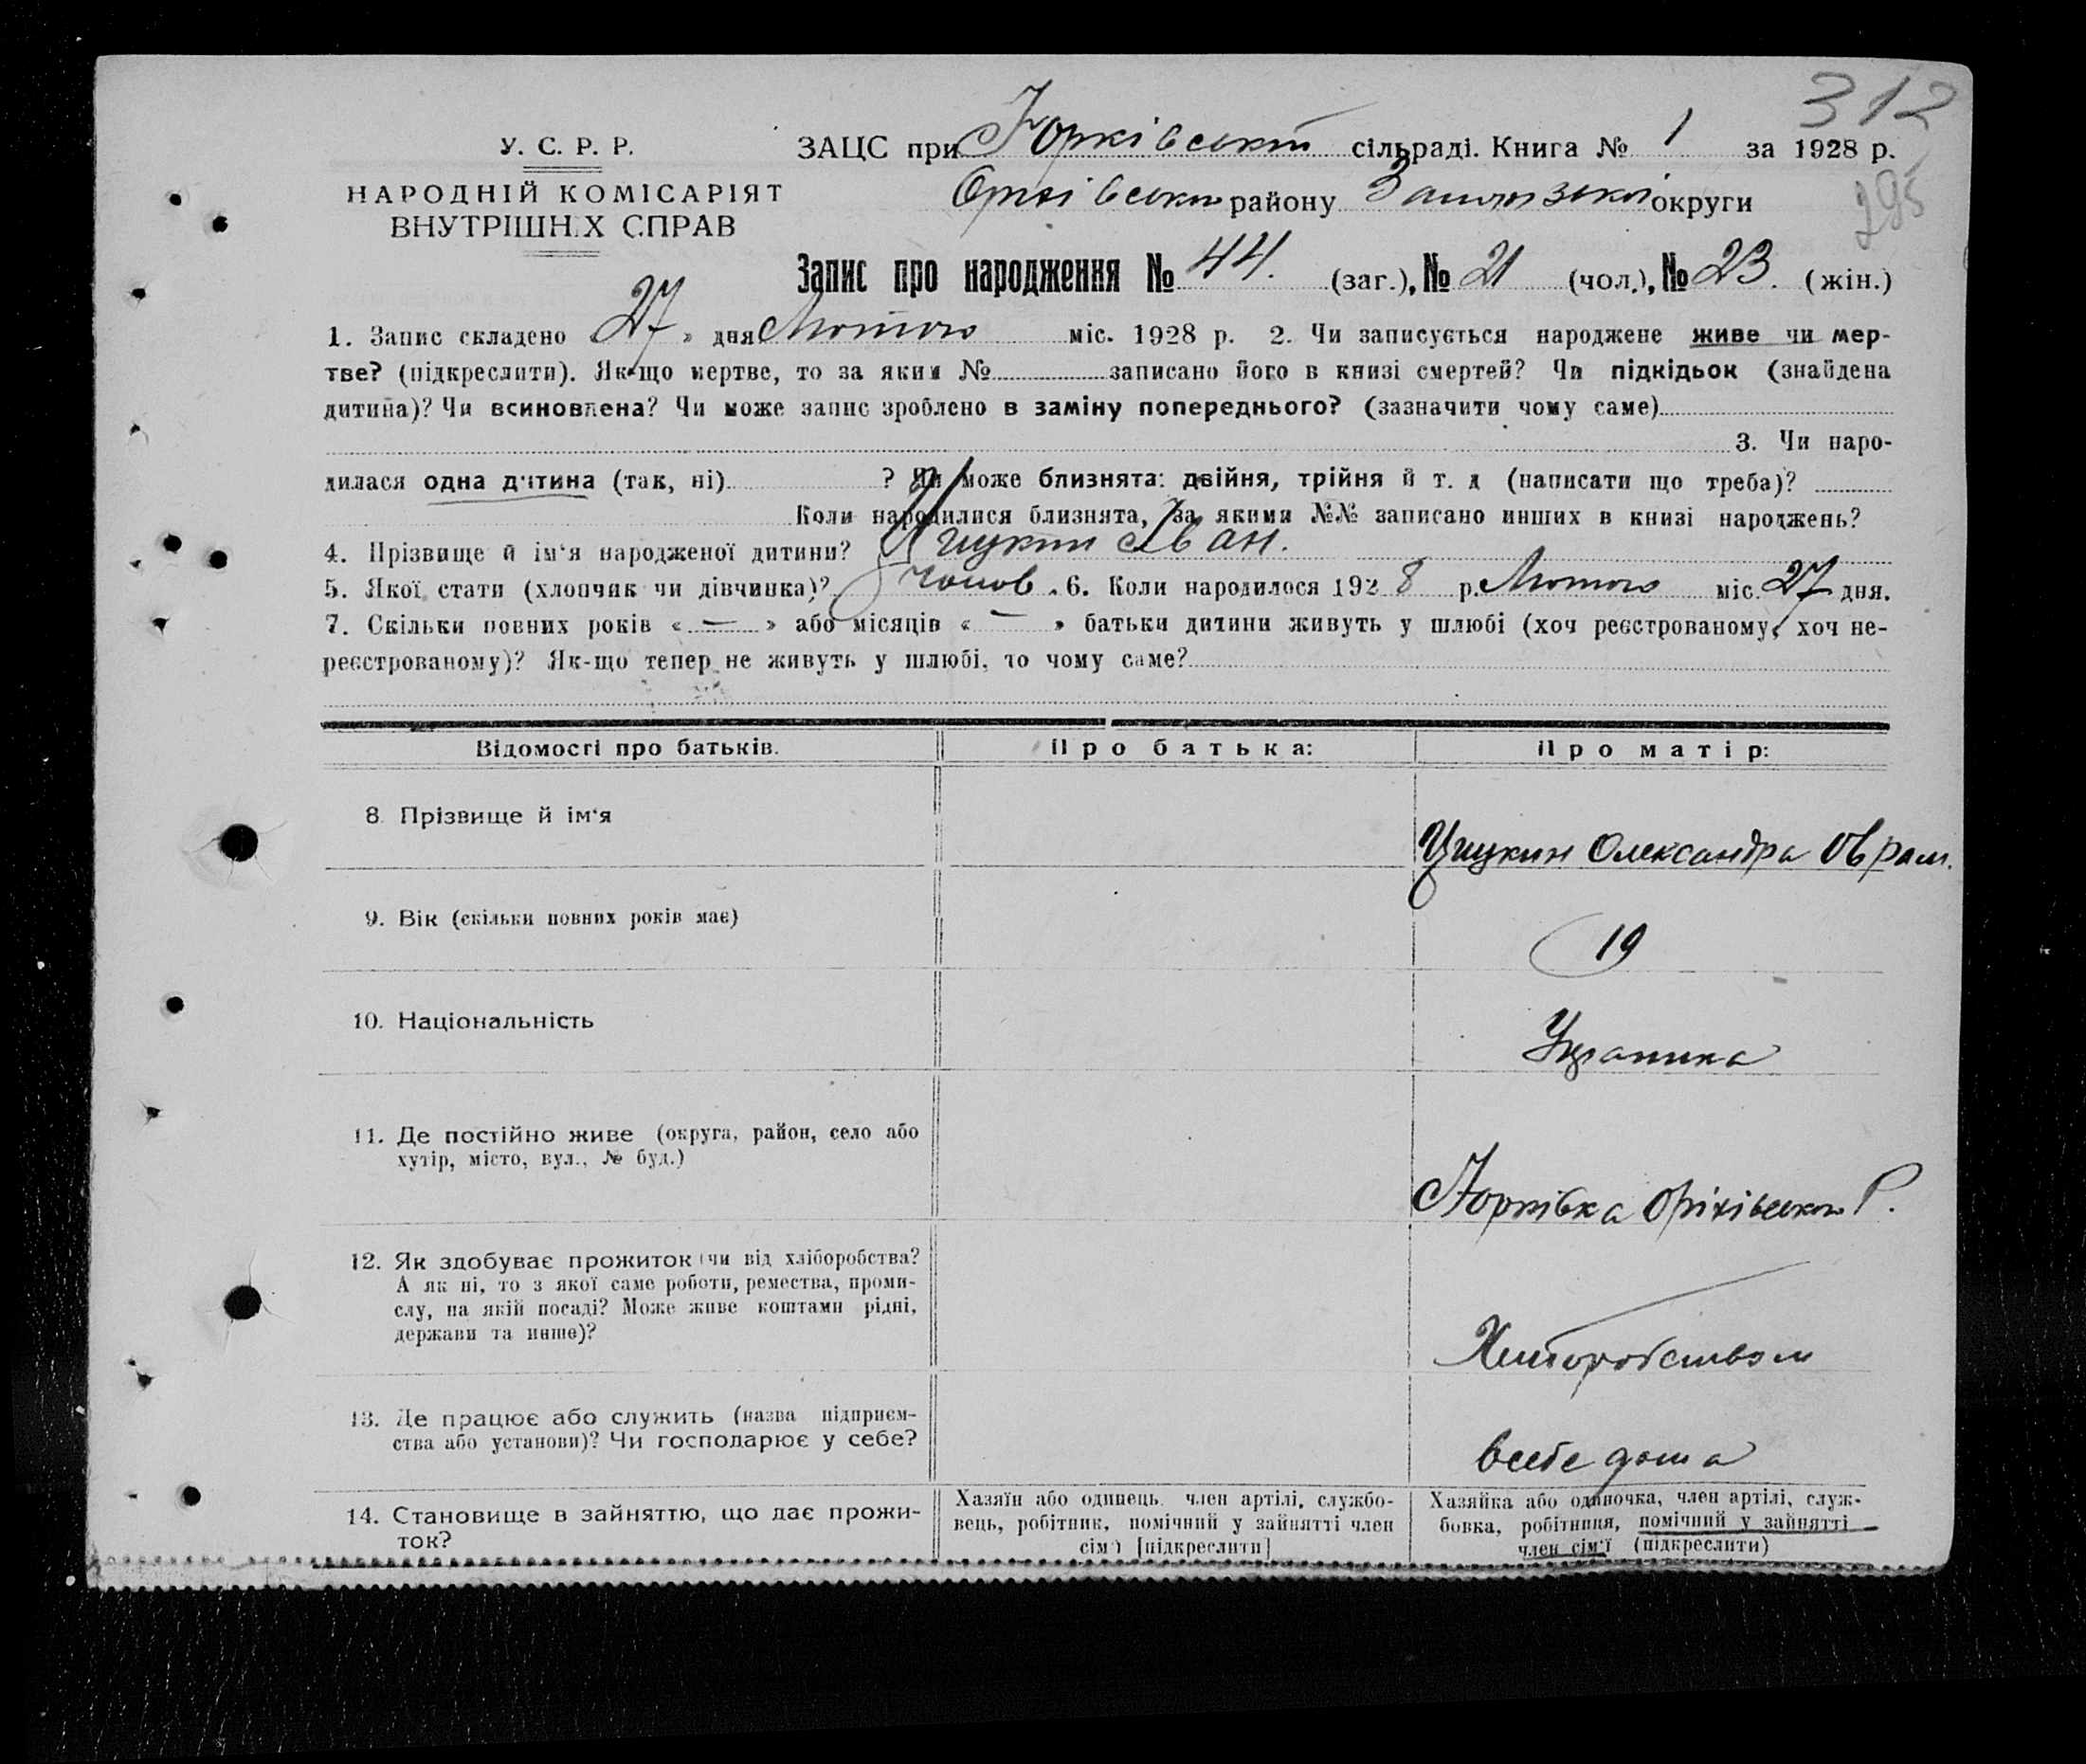 312
У. С. Р. Р.
ЗАЦС при Юрківській сільраді. Книга № 1 за 1928 р.
НАРОДНІЙ КОМІСАРІЯТ
Оріхівського району Запорізької округи
295
ВНУТРІШНІХ СПРАВ
Запис про народження № 44. (заг.), № 21 (чол.), № 23. (жін.)
1. Запис складено « 27 » дня Лютого міс. 1928 р. 2. Чи записується народжене живе чи мер-
тве? (підкреслити). Як-що мертве, то за яким № записано його в книзі смертей? Чи підкідьок (знайдена
дитина)? Чи всиновлена? Чи може запис зроблено в заміну попереднього? (зазначити чому саме)
3. Чи наро-
дилася одна дитина (так, ні) ? Чи може близнята: двійня, трійня й т. д (написати що треба)?
Коли народилися близнята, за якими №№ записано инших в книзі народжень?
4. Прізвище й ім'я народженої дитини? Іван.
5. Якої стати (хлопчик чи дівчинка)? чолов. 6. Коли народилося 1928 р. Лютого міс. 27 дня.
7. Скільки повних років « — » або місяців « — » батьки дитини живуть у шлюбі (хоч реєстрованому, хоч не-
реєстрованому)? Як-що тепер не живуть у шлюбі, то чому саме?
Відомості про батьків. Про батька: Про матір:
8. Прізвище й ім'я Олександра Оврам.
9. Вік (скільки повних років має) 19
10. Національність Українка
11. Де постійно живе (округа, район, село або
хутір, місто, вул., № буд.)
Юрківка Оріхівського Р.
12. Як здобуває прожиток (чи від хліборобства?
А як ні, то з якої саме роботи, ремества, проми-
слу, на якій посаді? Може живе коштами рідні,
держави та инше)?
Хліборобством
13. Де працює або служить (назва підприєм-
ства або установи)? Чи господарює у себе?
в себе дома
14. Становище в зайняттю, що дає прожи-
ток?
Хазяїн або одинець, член артілі, службо-
вець, робітник, помічний у зайнятті член
сім'ї [підкреслити]
Хазяйка або одиночка, член артілі, служ-
бовка, робітниця, помічний у зайнятті
член сім'ї (підкреслити)